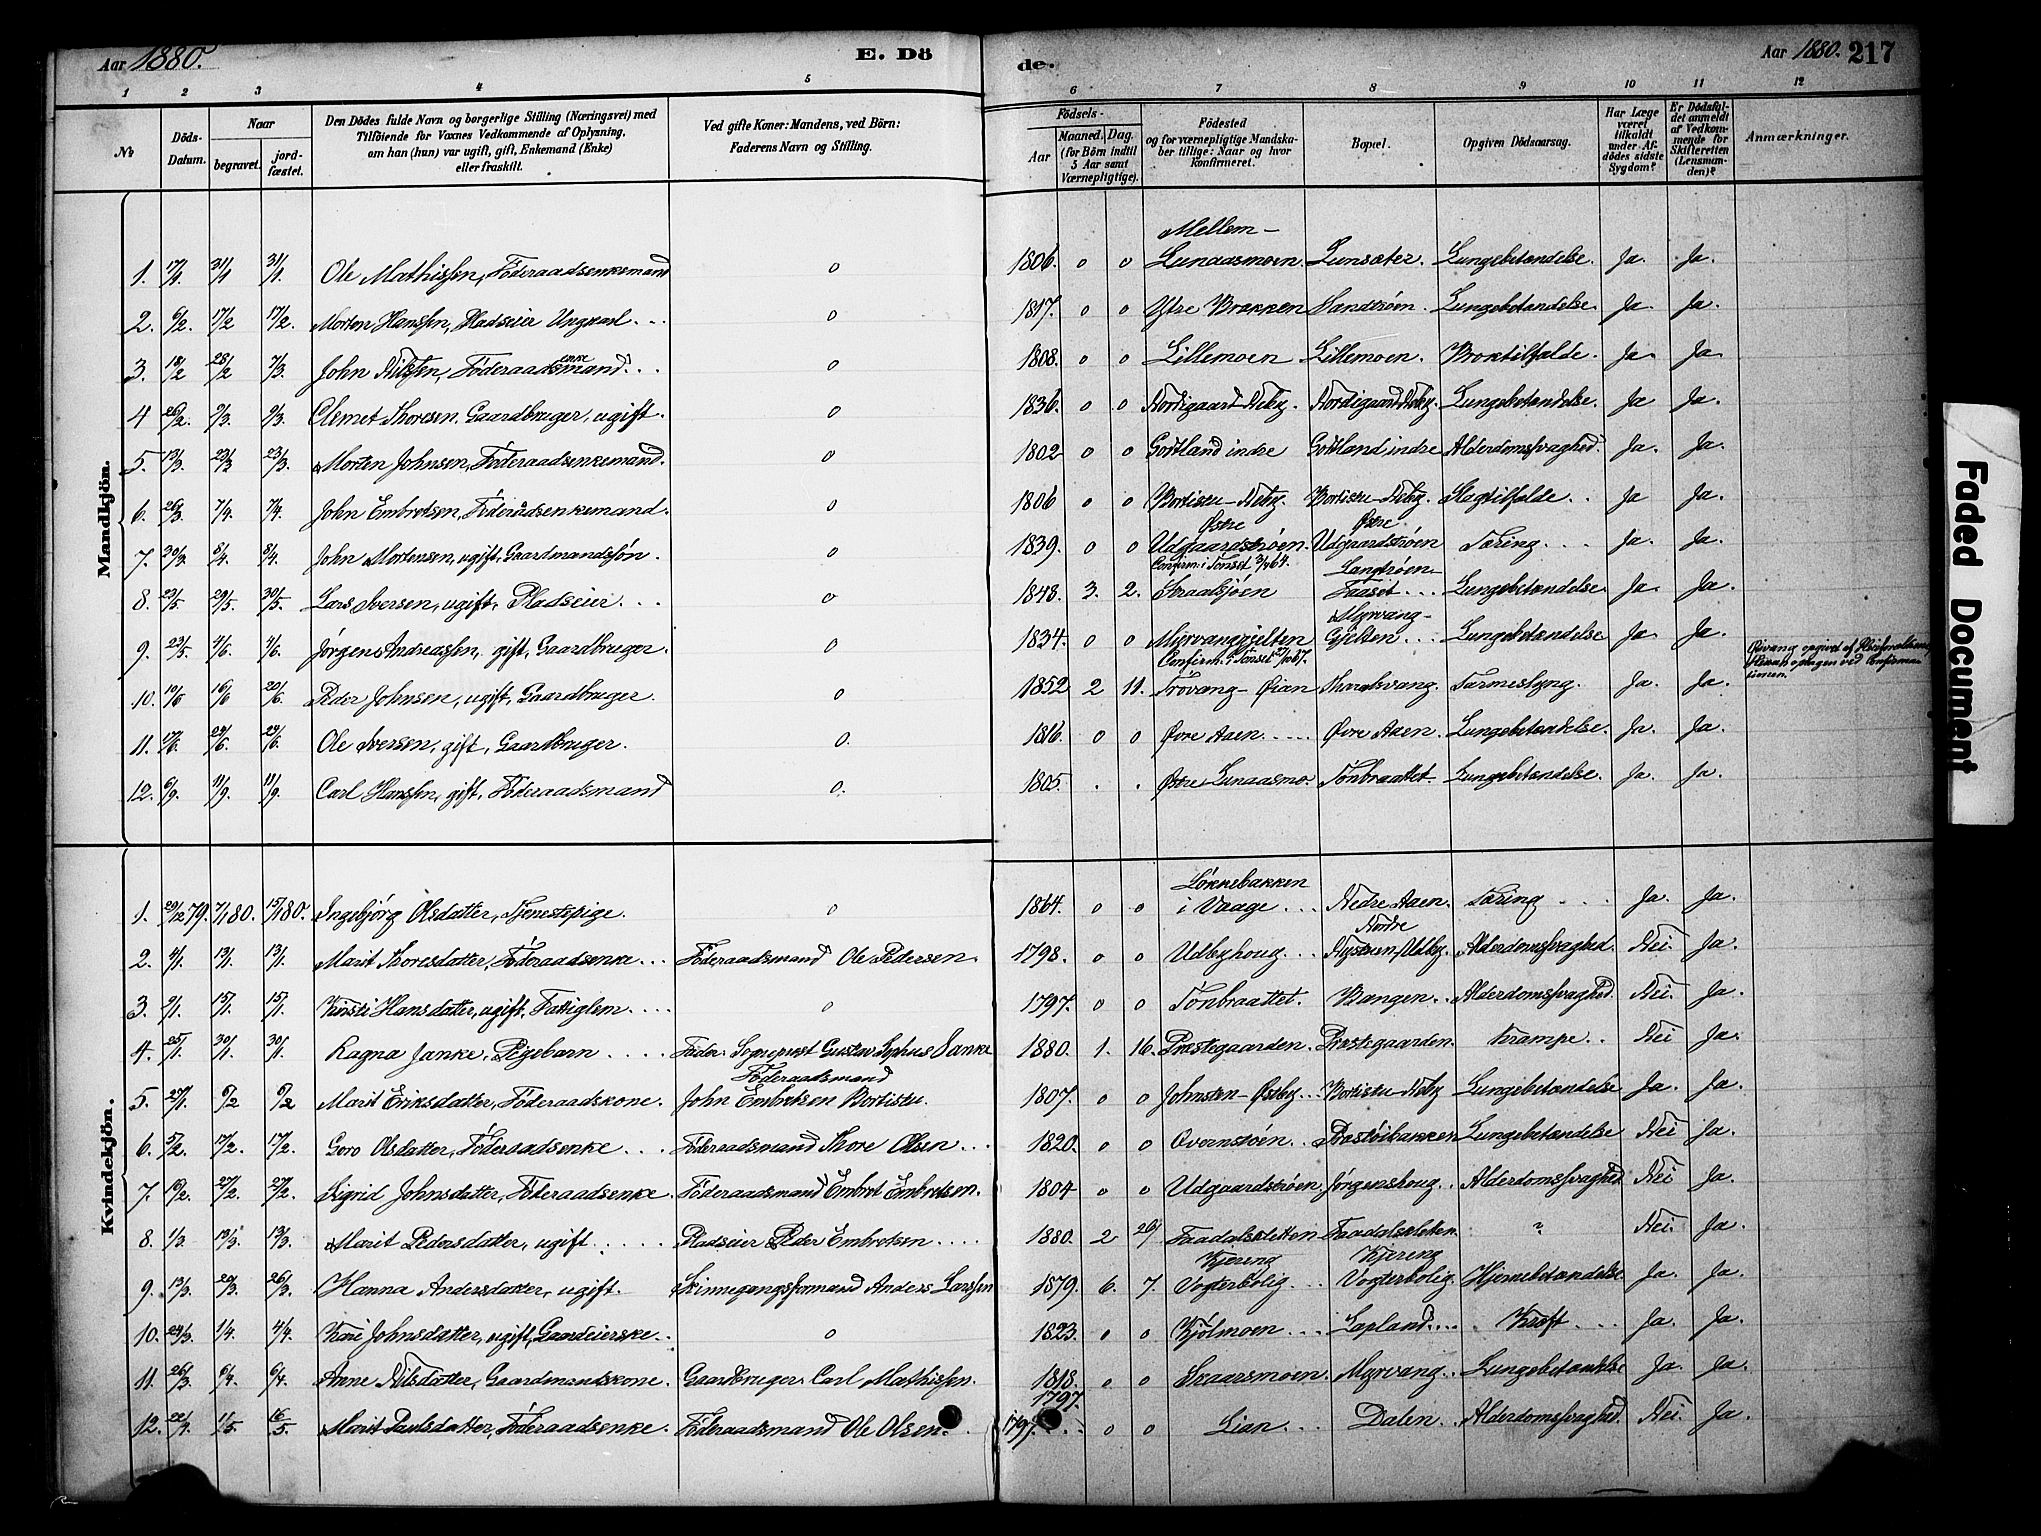 Aar 1880.
E. Döde.
Aar 1880. 217
1 2 3 4 5 6 7 8 9 10 11 12
№
Döds-Datum.
Naar
begravet.
jordfæstet.
Den Dödes fulde Navn og borgerlige Stilling (Næringsvei) med
Tilföiende for Voxnes Vedkommende af Oplysning,
om han (hun) var ugift, gift, Enkemand (Enke)
eller fraskilt.
Ved gifte Koner: Mandens, ved Börn:
Faderens Navn og Stilling.
Födsels-
Aar
Maaned. Dag.
(for Börn indtil
5 Aar samt
Værnepligtige).
Födested
og for værnepligtige Mandskaber
tillige: Naar og hvor
konfirmeret.
Bopæl.
Opgiven Dödsaarsag.
Har Læge
været
tilkaldt
under Afdödes
sidste
Sygdom?
Er Dödsfaldet
anmeldt
af Vedkommende
for
Skifteretten
(Lensmanden)?
Anmærkninger.
Mandkjön.
1. 17/1 31/1 31/1 Ole Mathissen, Föderaadsenkemand 0 1806. 0 0 Mellem-Lunaasmoen. Lunsæter. Lungebetændelse. Ja. Ja.
2. 6/2. 17/2 17/2. Morten Hanssen, Pladseier Ungkarl... 0 1817. 0 0 Ytre Brækken Sandtröen. Lungebetændelse. Ja. Ja.
3. 18/2 28/2 7/3. John Nilssen, Föderaadsenkemand... 0 1808. 0 0 Lillemoen Lillemoen. Ja. Ja.
4 26/2. 9/3. 9/3. Clemet Thoresen. Gaardbruger, ugift. 0 1836. 0 0 Nordigaard Neby. Nordigaard Neby. Lungebetændelse. Ja Ja.
5. 13/3. 23/3 23/3. Morten Johnsen, Föderaadsenkemand. 0 1802 0 0 Godtland indre Godtland indre Alderdomssvaghed. Ja. Ja.
6. 26/3. 7/4. 7/4. John Embretsen, Föderaadsenkemand. 0 1806 0 0 Bortistu-Neby. Bortistu-Neby. Slagtilfælde.. Ja Ja.
7. 30/3. 8/4. 8/4. John Mortensen, ugift, Gaardmandssön. 0 1839. 0 0 Østre Udgaardströen. Østre Udgaardströen Tæring... Ja. Ja.
8. 23/5. 29/5. 30/5. Lars Iversen, ugift, Pladseier... 0 1848. 3. 2. Confirm. i Tönset 3/7 64. Straalsjöen Langtröen-Faaset... Lungebetændelse Ja. Ja.
9. 23/5. 4/6. 4/6. Jörgen Andreassen, gift, Gaardbruger. 0 1834. 0 0 Myrvanggjelten Myrvang-Gjelten... Lungebetændelse Ja. Ja.
10. 10/6 16/6 20/6. Peder Johnsen, ugift, Gaardbruger. 0 1852 2 11. Trövang-Øian Ja. Ja.
11. 17/6. 29/6. 29/6. Ole Iversen, gift, Gaardbruger. 0. 1816. 0 0 Øvre Aaen.... Øvre Aaen. Lungebetændelse. Ja. Ja.
12. 6/9. 11/9. 11/9. Carl Hanssen, gift, Föderaadsmand 0. 1805. . . Østre Lunaasmo. Tonbraattet. Lungebetændelse. Ja. Ja.
Kvindekjön.
1. 29/12 79. 7/1 80. 15/1 80. Ingebjörg Olsdatter, Tjenestepige. 0 1864. 0 0 Lökkebakken i Vaage... Nedre Aaen. Tæring... Ja. Ja.
2. 4/1. 13/1. 13/1. Marit Thoresdatter, Föderaadsenke... Föderaadsmand Ole Pedersen. 1798. 0 0 Udbyhoug... Nordre Nystuen-Udby. Alderdomssvaghed. Nei. Ja.
3. 9/1. 15/1. 15/1. Kirsti Hansdatter, ugift, Fattiglem.... 0 1797. 0 0 Tonbraattet. Bangen.. Alderdomssvaghed. Nei. Ja.
4. 25/1. 30/1. 30/1. Ragna Janke, Pigebarn.... Fader: Sogneprest Gustav Sophus Janke 1880. 1. 16. Præstegaarden. Præstegaarden. Krampe.. Nei Ja.
5. 27/1. 6/2 6/2 Marit Eriksdatter, Föderaadskone. Föderaadsmand John Embretsen Bortistu. 1807. 0 0 Johnsten-Østby... Bortistu-Neby Lungebetændelse Ja. Ja.
6. 5/2. 17/2. 17/2. Goro Olsdatter, Föderaadsenke... Föderaadsmand Thore Olsen... 1820. 0 0 Lungebetændelse Nei Ja.
7. 16/2. 27/2. 27/2. Sigrid Johnsdatter, Föderaadsenke. Föderaadsmand Embret Embretsen. 1804 0 0 Udgaardströen. Jörgenshoug.. Alderdomssvaghed Nei Ja.
8. 1/3. 13/3. 13/3. Marit Pedersdatter, ugift..... Pladseier Peder Embretsen.... 1880. 2 26/ Faadalsletten Faadalsletten. ? Nei. Ja.
9. 13/3. 20/3. 26/3. Hanna Andersdatter, ugift. Skinnegangsformand Anders Larssen 1879. 6. 7. Kjereng Vogterbolig... Kjereng Vogterbolig. Hjernebetændelse Ja. Ja.
10. 24/3. 1/4. 4/4. Kari Johnsdatter, ugift, Gaardeierske.. 0 1823. 0 0 Kjölmoen... Lapland.... Kræft... Ja. Ja.
11. 26/3. 6/4. 6/4. Anne Nilsdatter, Gaardmandskone. Gaardbruger. Carl Mathissen. 1818. 0 0 Skaarsmoen. Myrvang.. Lungebetændelse Ja. Ja.
12. 22/4. 1/5. 16/5. Marit Paulsdatter, Föderaadsenke. Föderaadsmand Ole Olsen.. 1797. 1797. 0 0 Lian... Dalen. Alderdomssvaghed Nei. Ja.
Faded Document